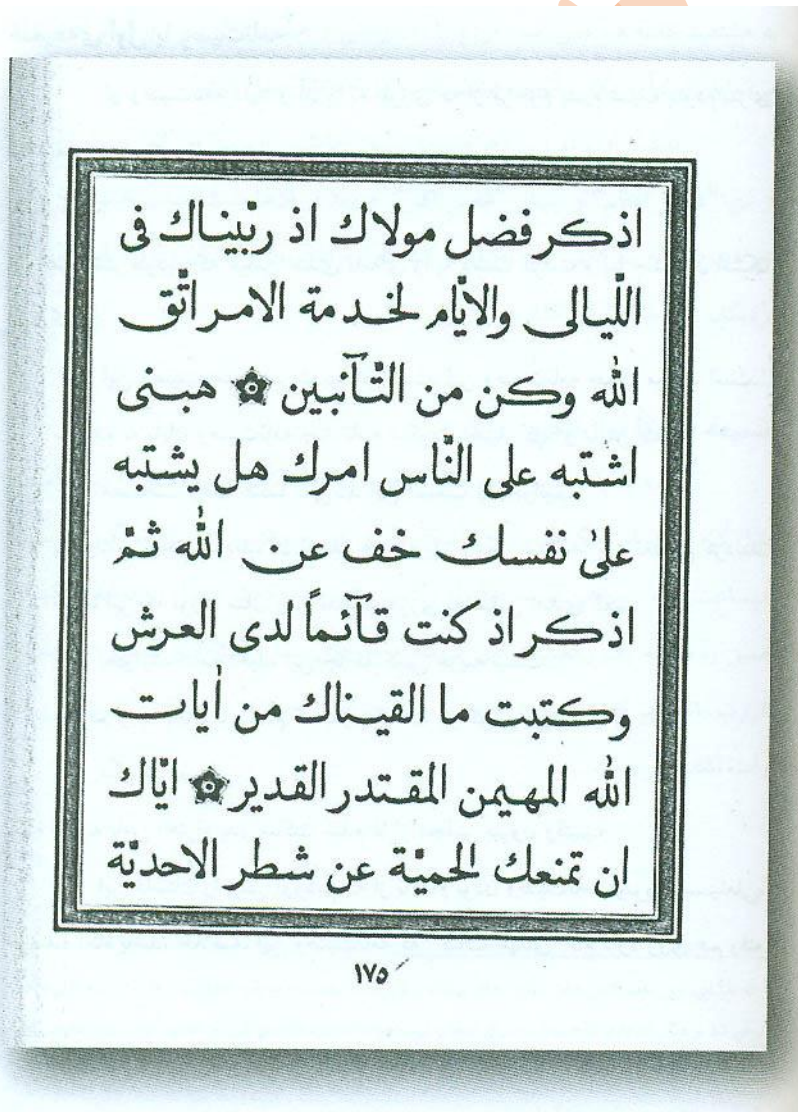 اذكر فضل مولاك اذ ربّيناك فى
اللّيالى والايّام لخدمة الامر اتّق
الله وكن من التّآئبين ۞ هبنى
اشتبه على النّاس امرك هل يشتبه
علىٰ نفسك خف عن الله ثمّ
اذكر اذ كنت قآئماً لدى العرش
وكتبت ما القيناك من اٰيات
الله المهيمن المقتدر القدير ۞ ايّاك
ان تمنعك الحميّة عن شطر الاحديّة
١٧٥